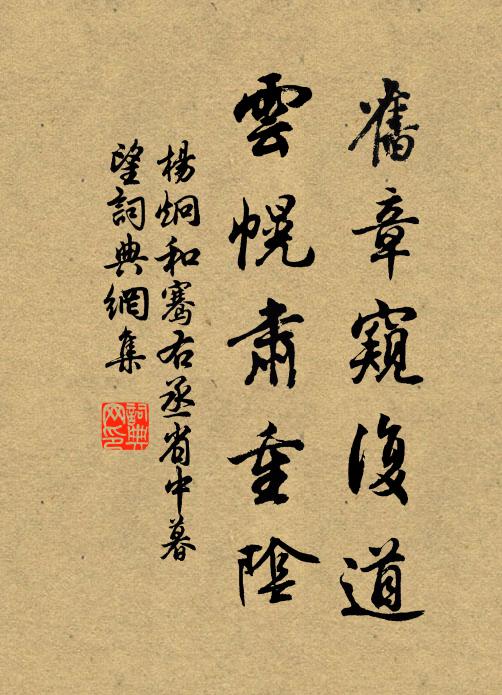 舊章窺復道
雲幌肅重陰
楊炯和騫右丞省中暮
望詞典網集
詞典
网印